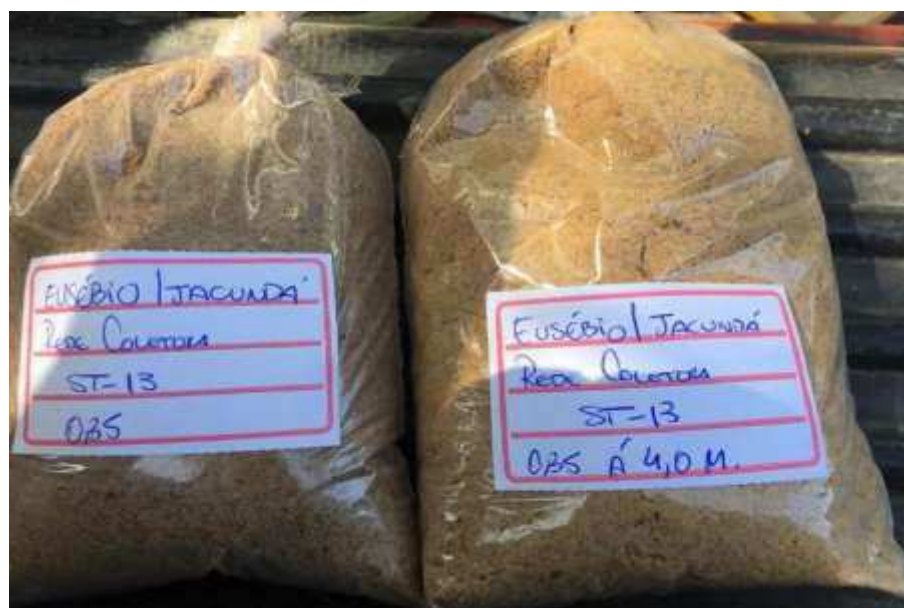 EUSÉBIO / JACUNDÁ
REDE COLETORA
ST-13
0,35
EUSÉBIO / JACUNDÁ
REDE COLETORA
ST-13
0,35 Á 4,0 M.